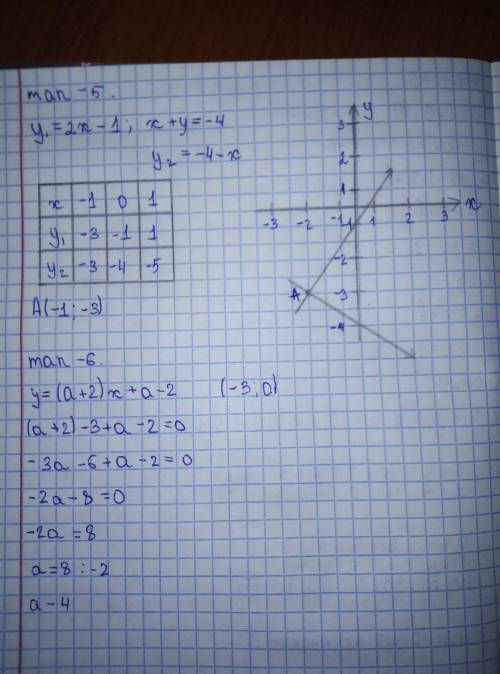 тап -5.
y₁ = 2x - 1; x + y = -4
y₂ = -4 - x
x -1 0 1
y₁ -3 -1 1
y₂ -3 -4 -5
A(-1; -3)
y
3
2
1
x
-3 -2 -1 1 2 3
-2
A -3
-4
тап -6.
y = (a+2)x + a - 2 (-3; 0)
(a+2) - 3 + a - 2 = 0
-3a - 6 + a - 2 = 0
-2a - 8 = 0
-2a = 8
a = 8 : -2
a - 4